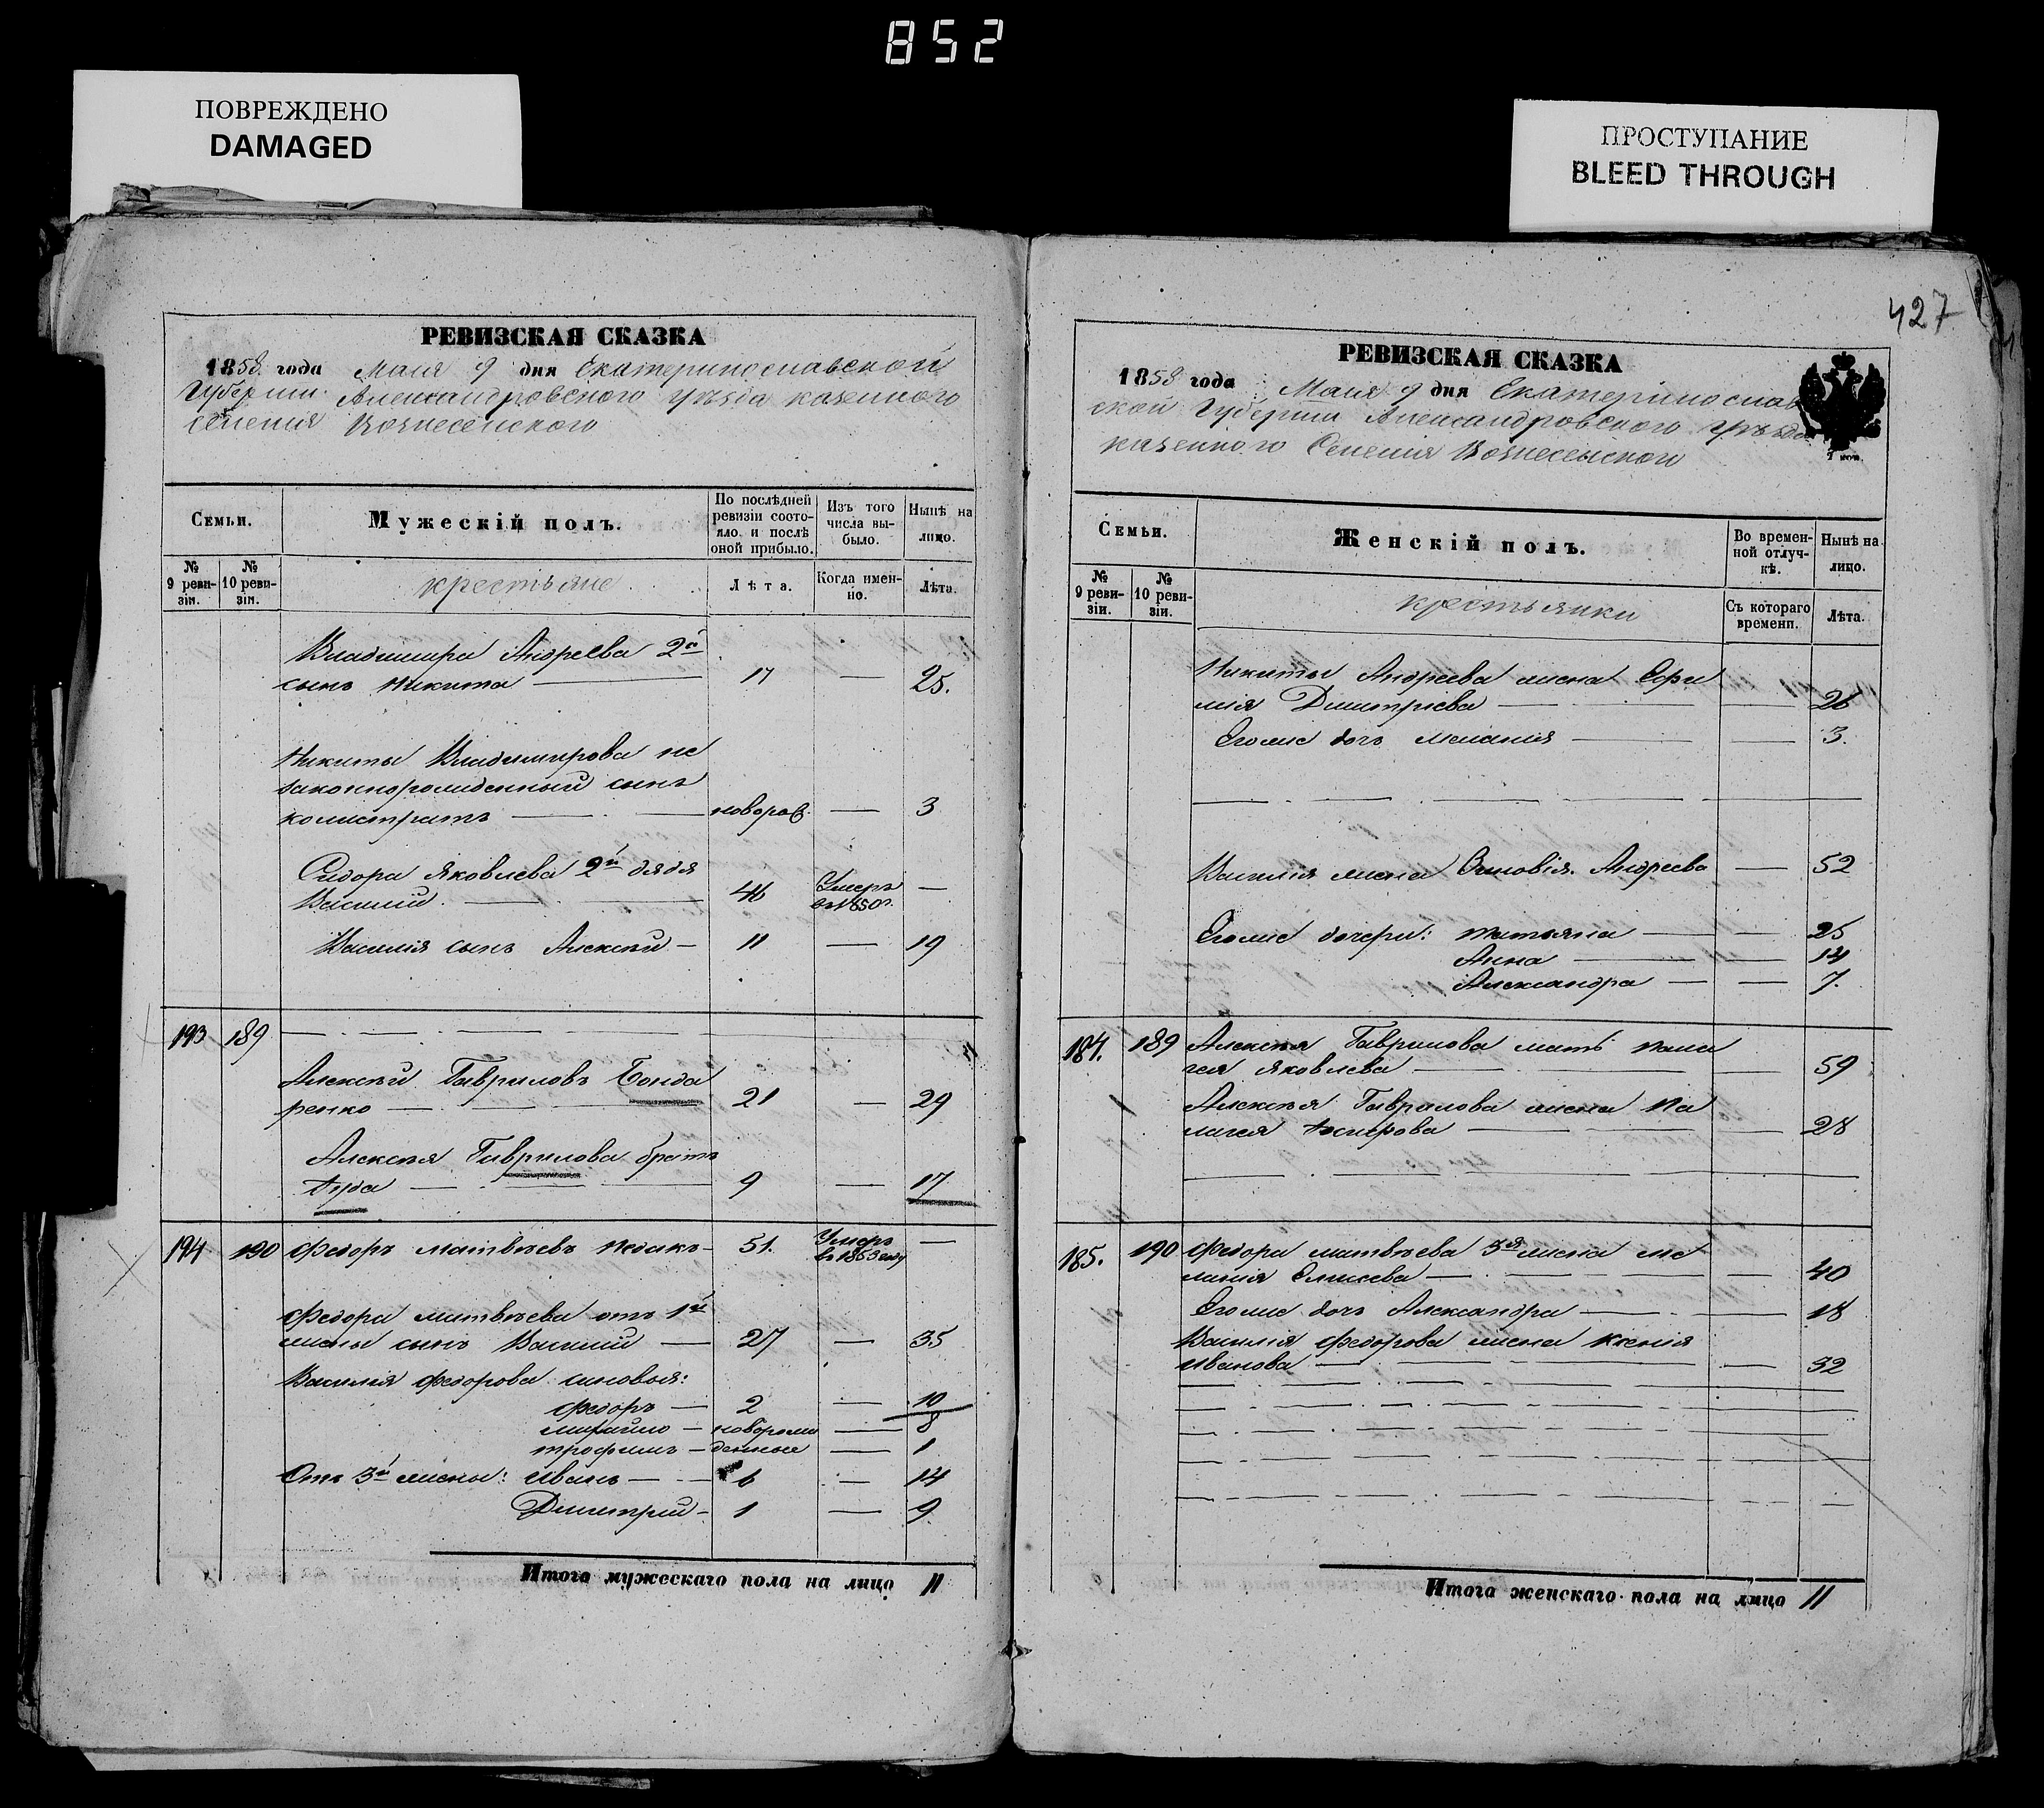 852
ПОВРЕЖДЕНО
DAMAGED
ПРОСТУПАНИЕ
BLEED THROUGH
РЕВИЗСКАЯ СКАЗКА
1858 года Маия 9 дня Екатеринославской
Губернии Александровского уезда казенного
селения Вознесенского
Семьи.
Мужескій полъ.
По послѣдней ревизіи состояло и послѣ оной прибыло.
Изъ того числа выбыло.
Нынѣ на лицо.
№ 9 ревизіи.
№ 10 ревизіи.
крестьяне
Лѣта.
Когда именно.
Лѣта.
Владимира Андреева 2й
сынъ Никита — 17 — 25.
Никиты Владимирова не
законнорожденный сынъ
калистратъ — новорож. — 3
Сидора Яковлева 2й дядя
Василий — 46 Умеръ въ 1850г. —
Василія сынъ Алексѣй — 11 — 19
193 189
Алексѣй Гавриловъ Бонда
ренко — 21 — 29
Алексѣя Гаврилова братъ
Iуда — 9 — 17
194 190 Федоръ Матвѣевъ — 51. Умеръ въ 1853 году —
Федора Матвѣева отъ 1й
жены сынъ Василий — 27 — 35
Василія Федорова сыновья:
Федоръ — 2 — 10
Михайло — новорож — 8
Трофимъ — денные — 1
Отъ 3й жены: Иванъ — 6 — 14
Димитрий — 1 — 9
Итого мужескаго пола на лицо 11
427
РЕВИЗСКАЯ СКАЗКА
1858 года Маия 9 дня Екатеринослав
ской Губернии Александровского уезда
казенного Селения Вознесенского
Семьи.
Женскій полъ.
Во временной отлучкѣ.
Нынѣ на лицо.
№ 9 ревизіи.
№ 10 ревизіи.
крестьянки
Съ котораго времени.
Лѣта.
Никиты Андреева жена Ефи
мія Димитріева — 26
Егоже дочь Меланія — 3.
Василія жена Зиновія Андреева — 52
Егоже дочери: Татьяна — 25
Анна — 14
Александра — 7.
187. 189 Алексѣя Гаврилова мать Пела
гея Яковлева — 59
Алексѣя Гаврилова жена Пе
лагея — 28
185. 190 Федора Матвѣева 3я жена Ме
ланія Елисеева — 40
Егоже дочь Александра — 18
Василія Федорова жена Ксенія
Иванова — 32
Итого женскаго пола на лицо 11